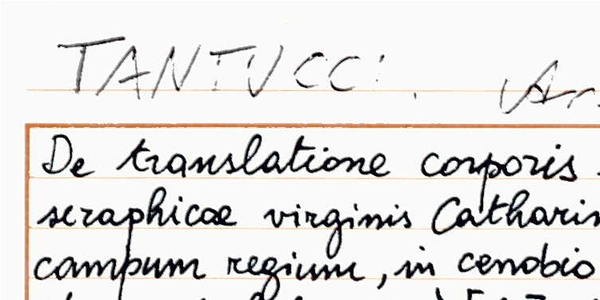 TANTUCCI.
De translatione corporis
seraphicae virginis Catharin
campum regium, in cenobio